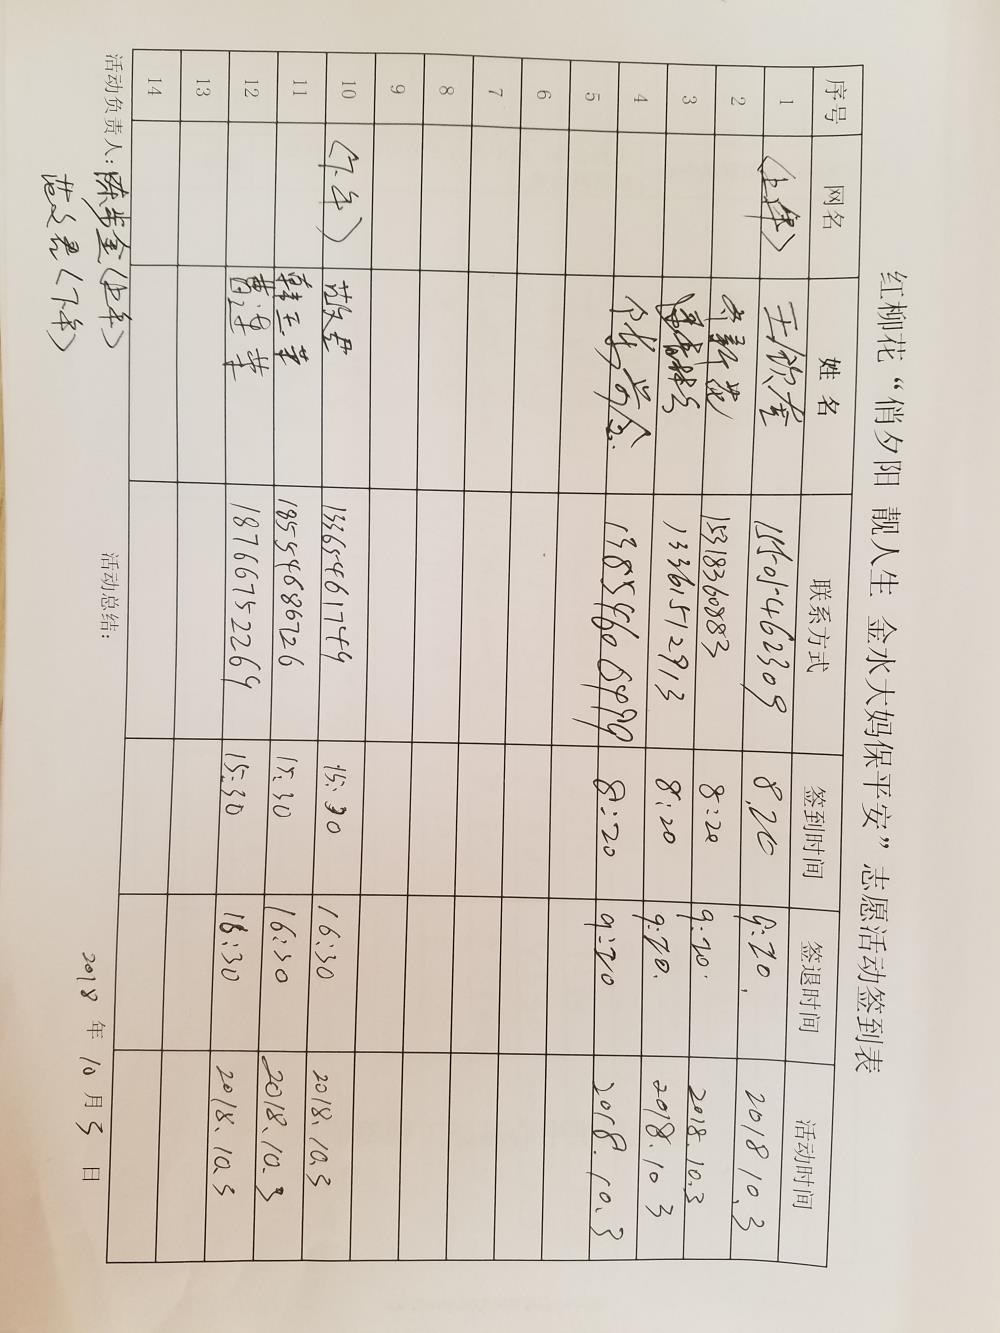 红柳花“俏夕阳 靓人生 金水大妈保平安”志愿活动签到表
序号 网名 姓名 联系方式 签到时间 签退时间 活动时间
1 (上午) 王欣奎 15501462309 8.20 9:20. 2018 10.3
2 15318360883 8:20 9:20. 2018.10.3
3 13361512913 8:20 9:20. 2018.10 3
4 8:20 9:20 2018.10.3
5
6
7
8
9
10 (下午) 范文君 13365461749 15:30 16:30 2018.10.3
11 18554686726 15:30 16:30 2018.10.3
12 18766752269 15:30 16:30 2018.10.3
13
14
活动负责人: 陈步金(上午) 活动总结: 2018年10月3日
范文君(下午)